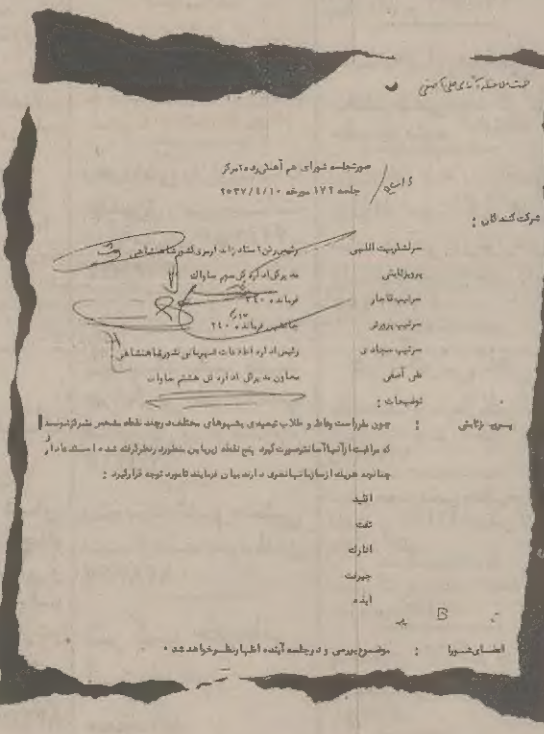 صورتجلسه شورای هم آهنگی رده ۲ مرکز
جلسه ۱۷۲ مورخه ۲۵۳۷/۴/۱۰
شرکت کنندگان :
سرلشگر بیت اللهی رئیس رکن ۲ ستاد ژاندارمری کشور شاهنشاهی
پرویز ثابتی مدیرکل اداره کل سوم ساواک
سرتیپ قاجار فرمانده ۲۴۰
سرتیپ پرورش جانشین فرمانده ۲۴۰
سرتیپ سجادی رئیس اداره اطلاعات شهربانی کشور شاهنشاهی
علی آصفی معاون مدیرکل اداره کل هشتم ساواک
توضیحات :
پرویز ثابتی : چون مقرر است وعاظ و طلاب تبعیدی بشهرهای مختلف در چند نقطه متمرکز شوند
که مراقبت از آنها آسانتر صورت گیرد پنج نقطه زیر باین منظور در نظر گرفته شده است
چنانچه هریک از سازمانها نظری دارند بیان فرمایند تا مورد توجه قرار گیرد :
تفت
انارک
جیرفت
ایذه
B
اعضای شورا : موضوع بررسی و در جلسه آینده اظهار نظر خواهد شد .